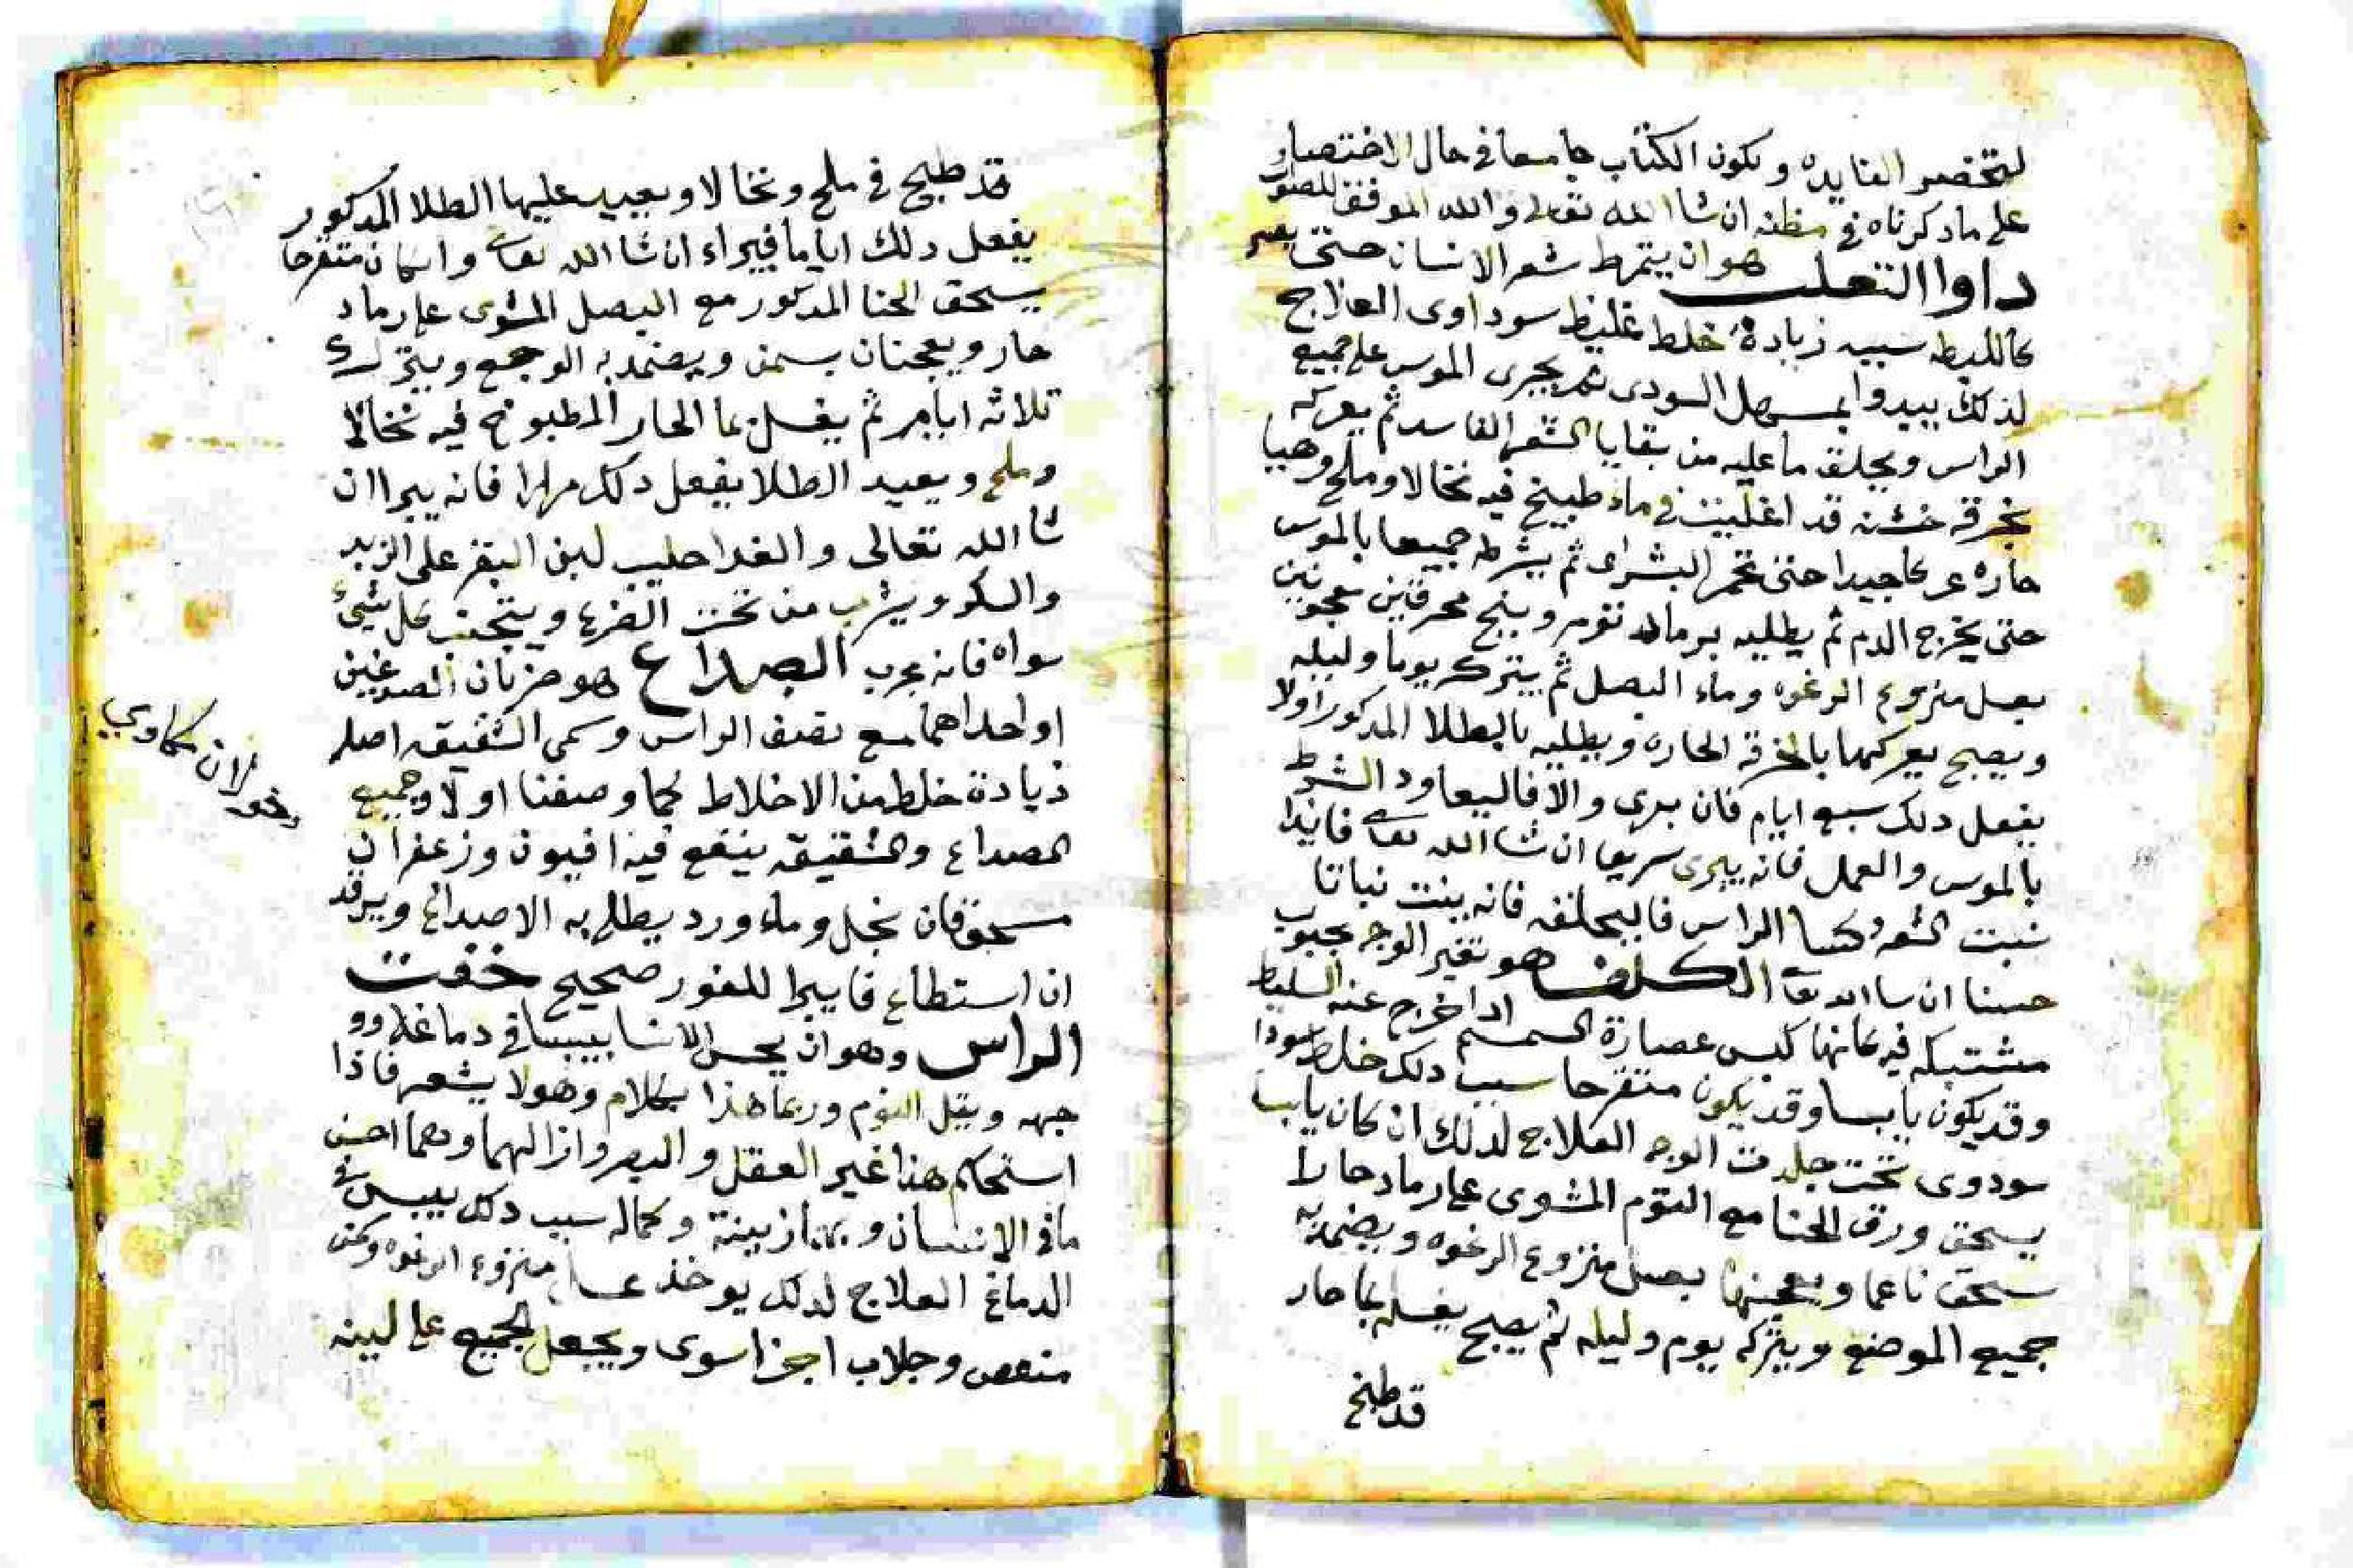 لتحضر الفايده ويكون الكتاب جامعا في حال الاختصار
على ما دكرناه في مظنه ان شا الله تعالى والله الموفق للصواب
داوا التعلب هو ان يتمرط شعر الانسان حتى يصير
كالليطه سببه زيادة خلط غليظ سوداوى العلاج
لذلك يبدوا بمسهل السودى ثم يجرى الموس على جميع
الراس ويحلق ما عليه من بقايا الشعر الفاسد ثم يعركه
بخرقه خشنه قد اغليت في ماء طبيخ فيه نخالا وملح وهيا
حاره عركا جيدا حتى تحمر البشراه ثم يشرطه جميعا بالموس
حتى يخرج الدم ثم يطليه برماد ثوم وبنج محرقين معجونين
بعسل منزوع الرغوه وماء البصل ثم يترك يوما وليله
ويصبح يعركها بالخرقه الحاره ويطليه بالطلا المدكور اولا
يفعل دلك سبع ايام فان برى والا فاليعاود الشرط
بالموس والعمل فانه يبرى سريعا ان شا الله تعالى فايدا
نبت الشعر وكسا الراس فاليحلقه فانه ينبت نباتا
حسنا ان سا الله تعا الكلف هو تغير الوجه بحبوب
مشتبكه فيه كانها كبس عصارة السمسم ادا خرج عنه السليط
وقد يكون يابسا وقد يكون متقرحا سبب دلك خلط سودا
سودوى تحت جلدت الوجه العلاج لذلك ان كان يابسا
يسحق ورق الحنا مع الثوم المشوى على رماد حار
سحق ناعما ويعجنها بعسل منزوع الرغوه ويضمد به
جميع الموضع ويتركه يوم وليله ثم يصبح يغسله بما حار
قد طبخ
قد طبخ في ملح ونخالا ويعيد عليها الطلا المدكور
يفعل دلك اياما فيبراء ان شا الله تعا وان كان متقرحا
يسحق الحنا المدكور مع البصل المشوى على رماد
حار ويعجنان بسمن ويضمد به الوجع ويترك
ثلاثه ايام ثم يغسل بما الحار المطبوخ فيه نخالا
وملح ويعيد الطلا يفعل دلك مرارا فانه يبرا ان
شا الله تعالى والغدا حليب لبن البقر على الزبد
والسكر ويشرب من تحت الضرع ويتجنب كل شيء
سواه فانه مجرب الصداع هو ضربان الصدغين
او احداهما مع نصف الراس وسمى الشقيقه اصله
زيادة خلط من الاخلاط كما وصفنا اولا وجميع
الصداع والشقيقه ينفع فيه افيون وزعفران
مسحوقان بخل وماء ورد يطلى به الاصداغ ويرقد
ان استطاع فايبرا للفور صحيح خفت
الراس وهو ان يحس الانسا بيبسا في دماغه وو
جهه ويقل النوم وربما هذا بكلام وهو لا يشعر فاذا
استحكم هذا غير العقل والبصر وازالهما وهما احسن
ما في الانسان وبهما زينته وكماله سبب دلك يبس في
الدماغ العلاج لدلك يوخذ عسل منزوع الرغوه وكثر
منعص وجلاب اجزا سوى ويجعل الجميع على لبينه
وخولان مكاوي